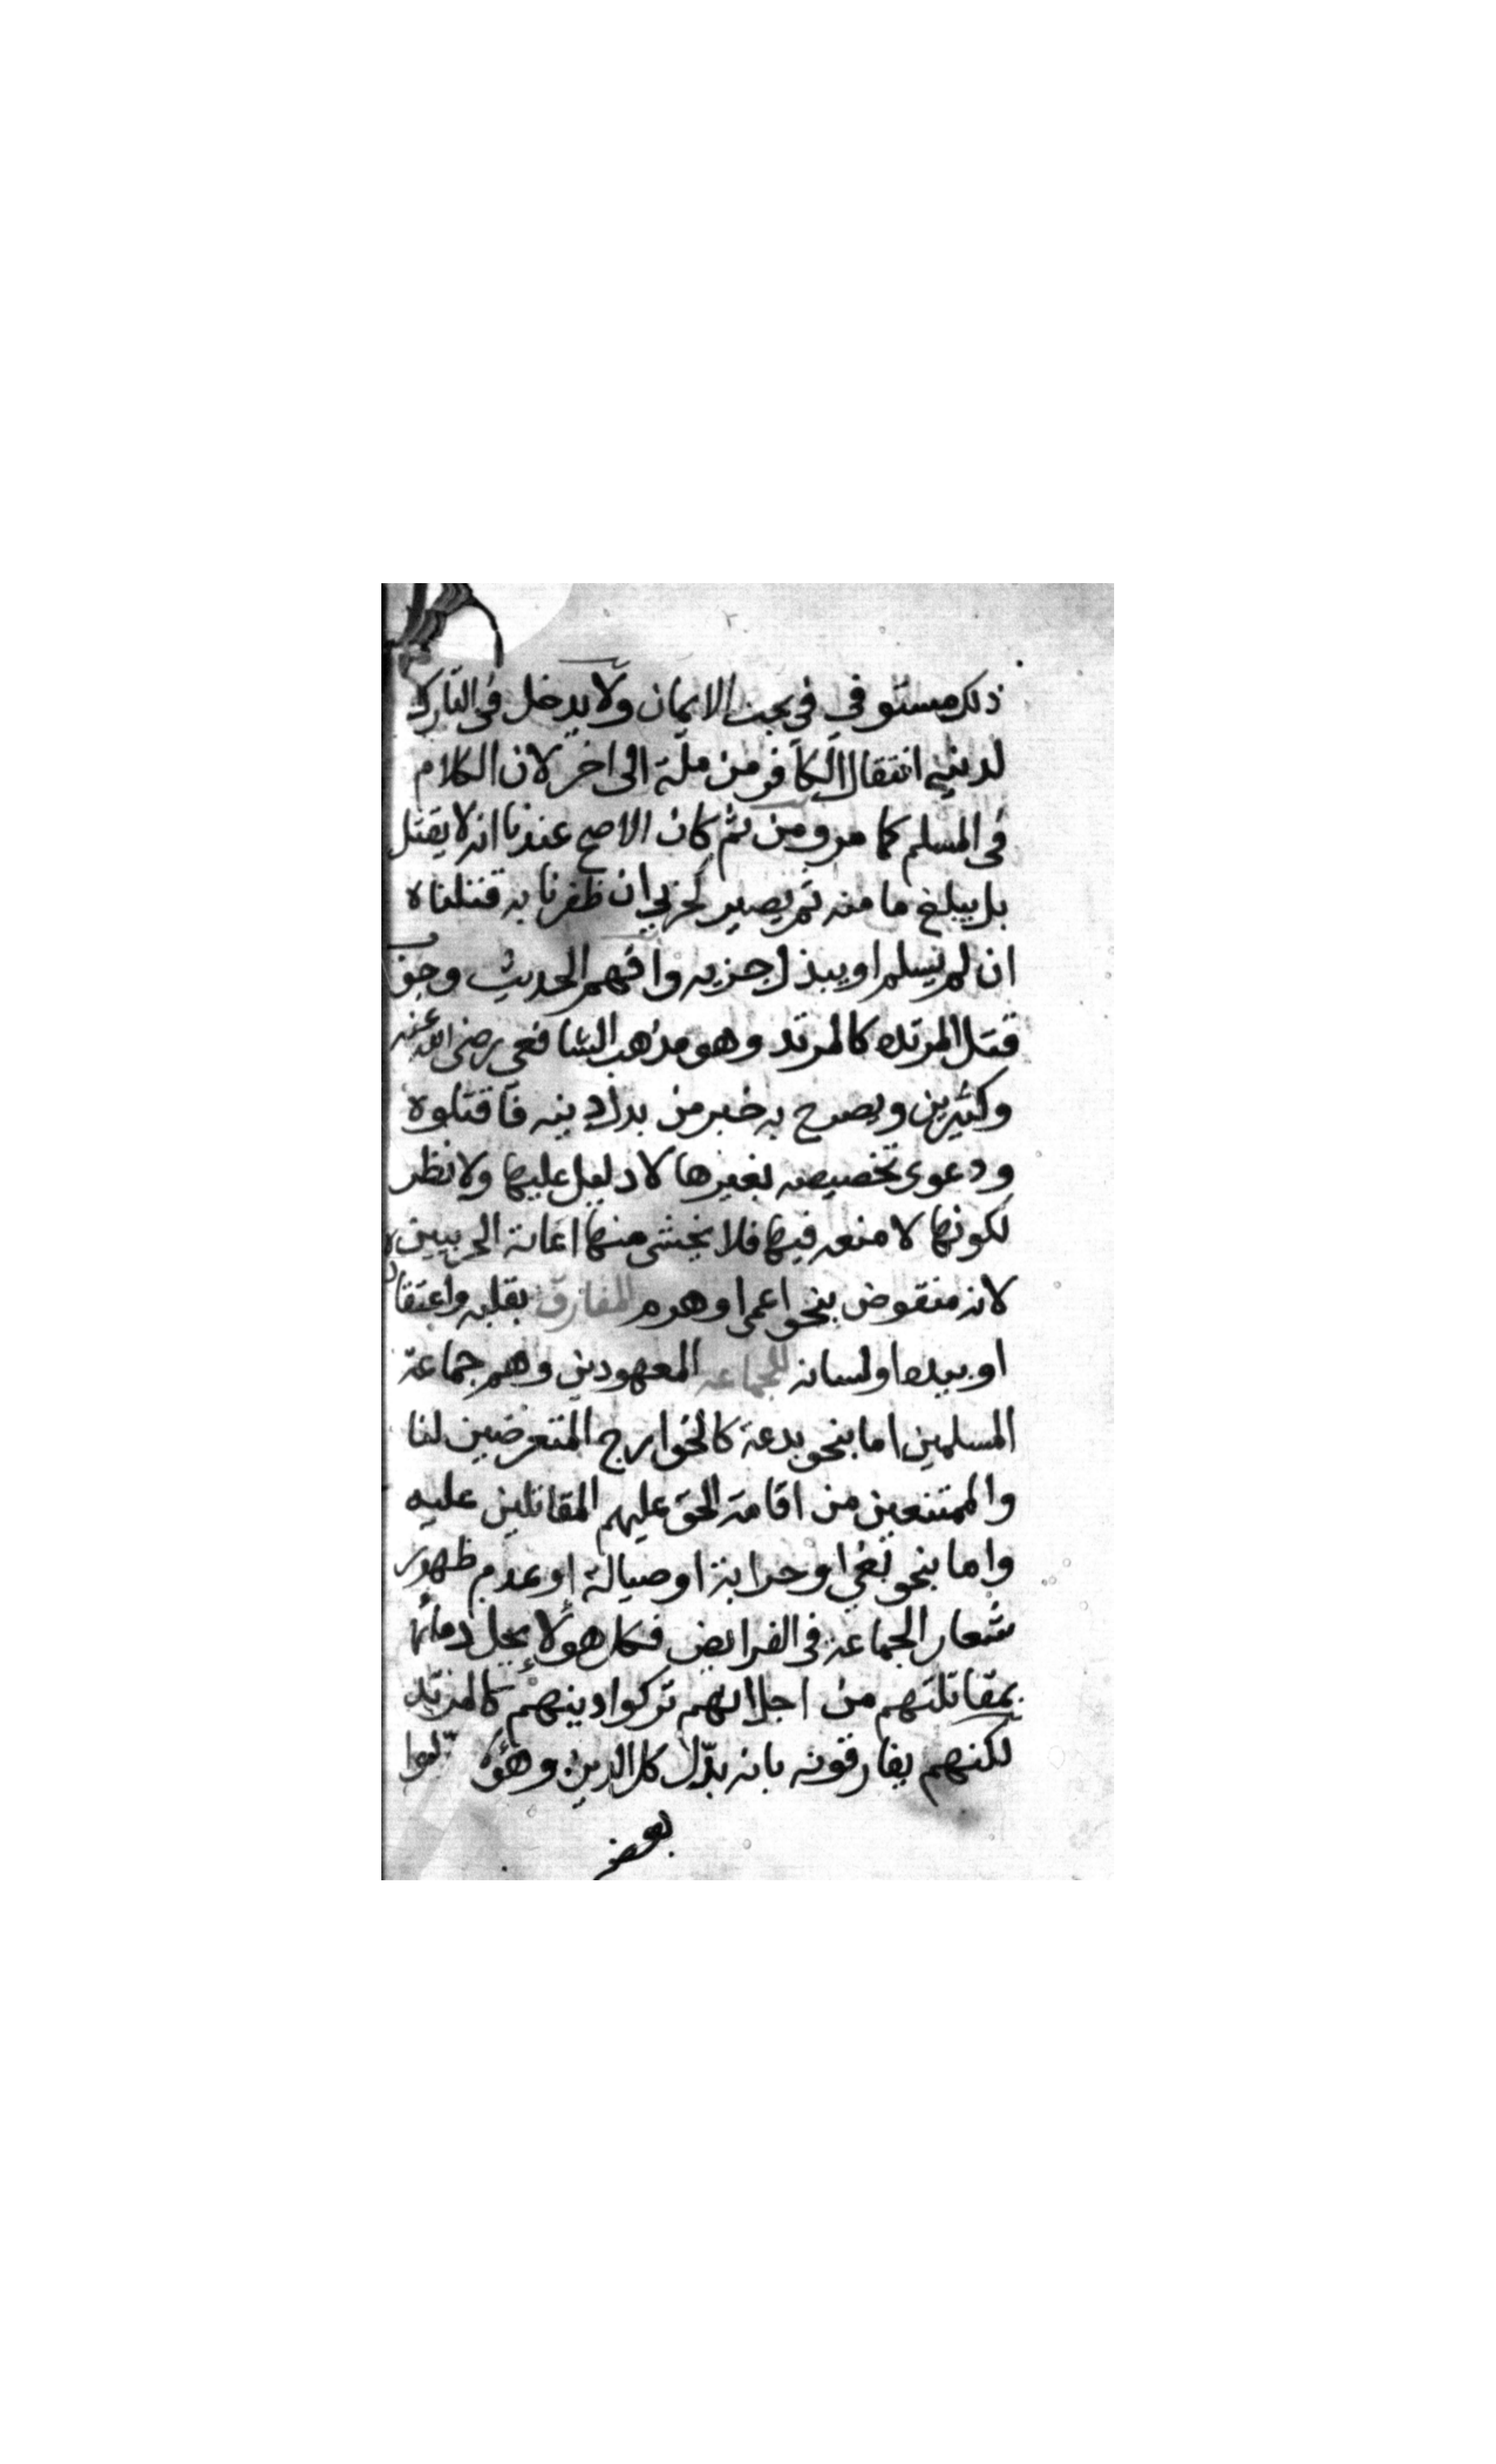 ذلك مستوفي في بحث الايمان ولا يدخل في التارك
لدينه انتقال الكافر من ملة الى اخر لان الكلام
في المسلم كما مر ومن ثم كان الاصح عندنا انه لا يقتل
بل يبلغ ما منه ثم يصير كحربي ان ظفرنا به قتلناه
ان لم يسلم او يبذل جزيه وافهم الحديث وجوب
قتل المرتده كالمرتد وهو مذهب الشافعي رضى الله عنه
وكثيرين ويصرح به خبر من بدل دينه فاقتلوه
ودعوى تخصيصه بغيرها لا دليل عليها ولا نظر
لكونها لا منعه فيها فلا يخشى منها اعانة الحربيين
لانه منقوض بنحو اعمى او هرم المفارق بقلبه واعتقاد
او بيده او لسانه للجماعه المعهودين وهم جماعة
المسلمين اما بنحو بدعة كالخوارج المتعرضين لنا
والممتنعين من اقامة الحق عليهم المقاتلين عليه
واما بنحو بغي او حرابة او صيالة او عدم ظهور
شعار الجماعة في الفرايض فكل هولاء يحل دمائهم
بمقاتلتهم من اجل انهم تركوا دينهم كالمرتد
لكنهم يفارقونه بانه بدّل كل الدين وهؤلاء بدّلوا
بعضه